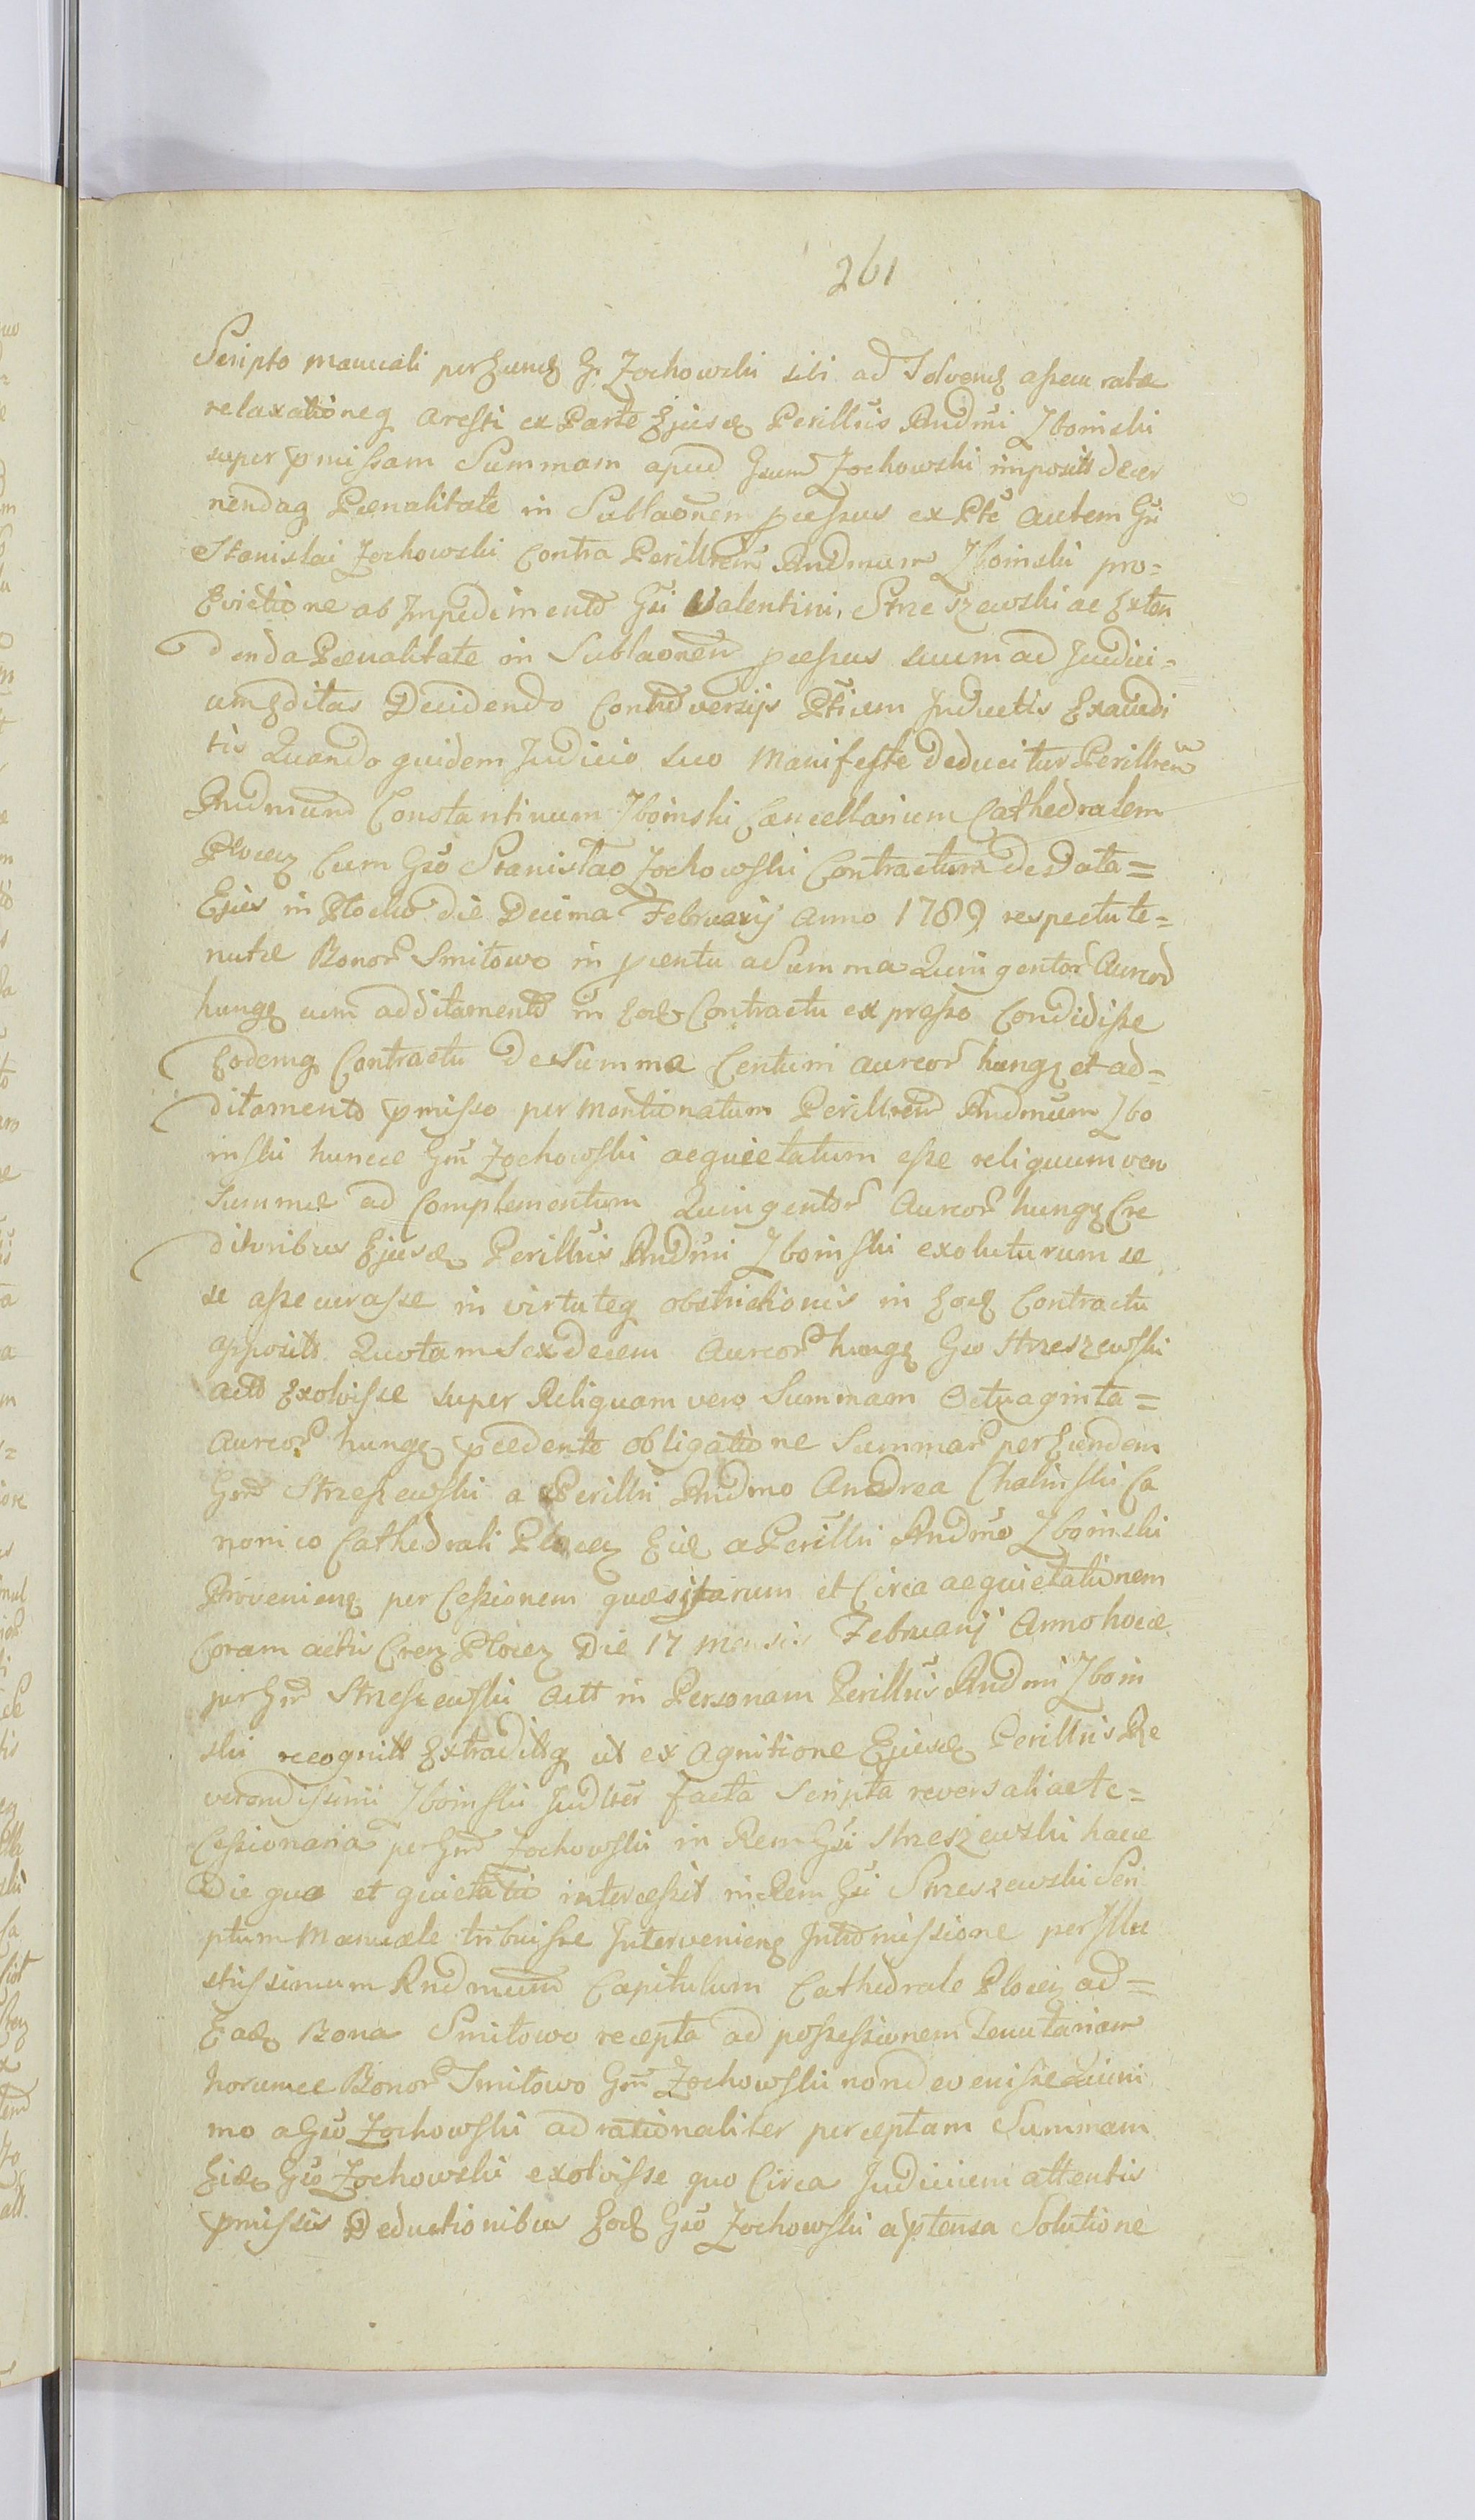 261
Scripto manuali per Eund G. Zochowski sibi ad Solvend assecuratæ
relaxationeq Aresti ex Parte Ejusd Perillris Rndmi Zboinski
super pmissam Summam apud Gsum Zochowski imposit decer
nendaq Pœnalitate in Sublaonem pcessus ex Pte autem Gsi
Stanislai Zochowski Contra Perillrem Rndmum Zboinski pro=
Evictione ab Impedimento Gsi Valentini Strzeszewski ac Exten
denda Pœnalitate in Sublaonem pcessus suum ad Judici=
um Editas Decidendo Controversijs Ptium Inductis Exaudi
tis Quandoquidem Judicio suo Manifeste deducitur Perillrem
Rndmum Constantinum Zboinski Cancellarium Cathedralem
Plocen Cum Gso Stanislao Zochowski Contractum de Data=
Ejus in Plocko die Decima Februarij Anno 1789 respectu te=
nutæ Bonor Smitowo in pcentu a Summa Quingentor Aureor
hung cum additamento in Eod Contractu expresso Condidisse
Eodemq Contractu de Summa Centum aureor hung et ad=
ditamento pmisso per Mentionatum Perillrem Rndmum Zbo
inski huncce Gsm Zochowski acquietatum esse reliquum vero
Summæ ad Complementum Quingentor Aureor hung Cre
ditoribus Ejusd Perillris Rndmi Zboinski exoluturum se
se assecurasse in virtuteq obstrictionis in Eod Contractu
apposit Quotam Sexdecem Aureor hung Gso Strzeszewski
actt Exolvisse super Reliquam vero Summam Octuaginta=
Aureor hung pcedente obligatione Summar per Eundem
Gsm Strzeszewski a Perillri Rndmo Andrea Chalinski Ca
nonico Cathedrali Plocen Eid a Perillri Rndmo Zboinski
Provenien per Cessionem quæsitarum et Circa acquietationem
Coram actis Cren Plocen Die 17 mensis Februarij Anno hocce
per Gsm Strzeszewski Actt in Personam Perillris Rndmi Zboin
ski recognitt Extraditisq ut ex Agnitione Ejusd Perillris Re
verendissimi Zboinski Judltr facta Scripta reversali acte=
Cessionaria per Gsm Zochowski in Rem Gsi Strzeszewski hacce
Die qua et quietatio intercessit in Rem Gsi Strzeszewski Scri
ptum Manuale tribuisse Intervenien Intromissione per Illu
strissimum Rndmum Capitulum Cathedrale Plocen ad=
Ead Bona Smitowo recepta ad possessionem Tenutariam
horumce Bonor Smitowo Gsm Zochowski non devenisse Quini
mo a Gso Zochowski ad rationaliter perceptam Summam
Eid Gso Zochowski exolvisse quo Circa Judicium attentis
pmissis Deductionibus Eod Gso Zochowski a ptensa Solutione